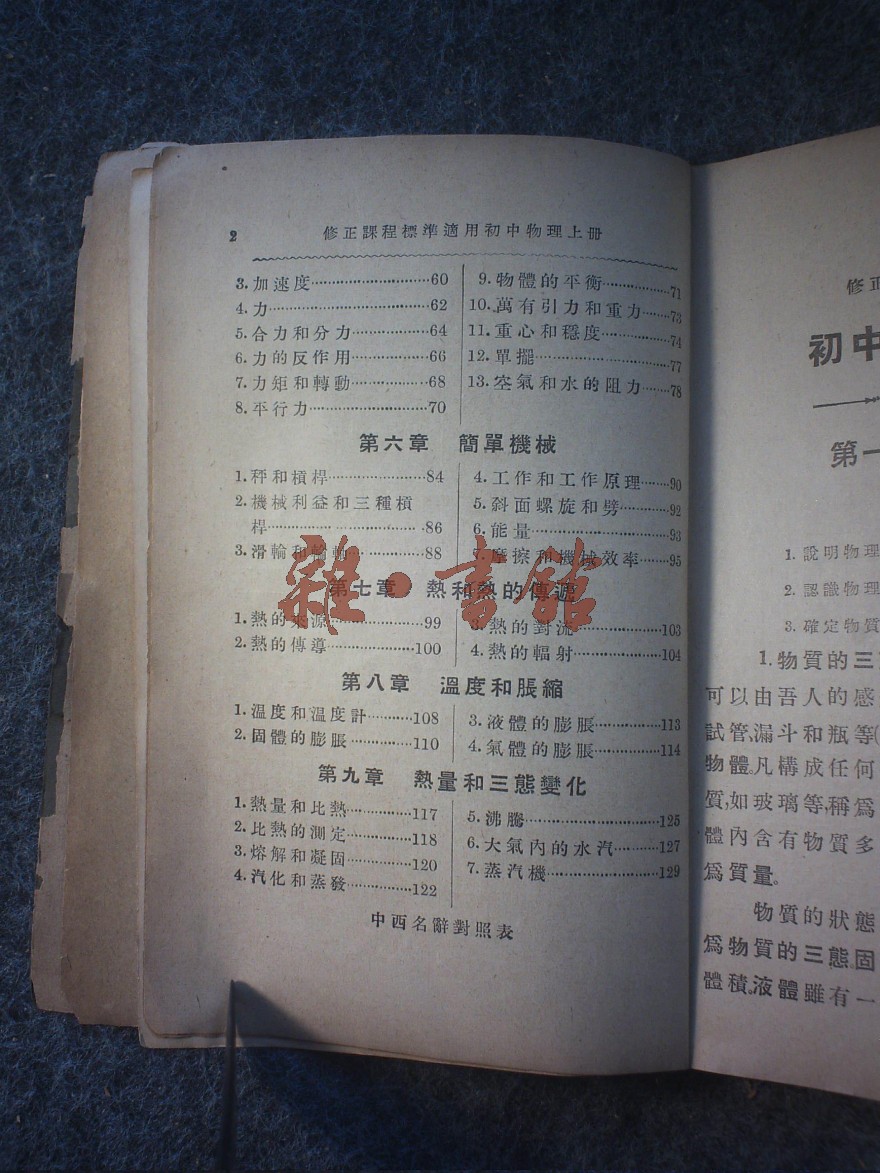 2
修正課程標準適用初中物理上册
3. 加速度 60
4. 力 62
5. 合力和分力 64
6. 力的反作用 66
7. 力矩和轉動 68
8. 平行力 70
9. 物體的平衡 71
10. 萬有引力和重力 73
11. 重心和穩度 74
12. 單擺 77
13. 空氣和水的阻力 78
第六章 簡單機械
1. 秤和槓桿 84
2. 機械利益和三種槓
桿 86
3. 滑輪和輪軸 88
4. 工作和工作原理 90
5. 斜面螺旋和劈 92
6. 能量 93
7. 摩擦和機械效率 95
第七章 熱和熱的傳遞
1. 熱的來源 99
2. 熱的傳導 100
3. 熱的對流 103
4. 熱的輻射 104
第八章 溫度和脹縮
1. 温度和温度計 108
2. 固體的膨脹 110
3. 液體的膨脹 113
4. 氣體的膨脹 114
第九章 熱量和三態變化
1. 熱量和比熱 117
2. 比熱的測定 118
3. 熔解和凝固 120
4. 汽化和蒸發 122
5. 沸騰 125
6. 大氣內的水汽 127
7. 蒸汽機 129
中西名辭對照表
雜·書館
修正
初中
第一
1. 說明物理
2. 認識物理
3. 確定物質
1. 物質的三
可以由吾人的感
試管,漏斗和瓶等(
物體。凡構成任何
質,如玻璃等,稱爲
體內含有物質多
爲質量。
物質的狀態
爲物質的三態。固
體積。液體雖有一